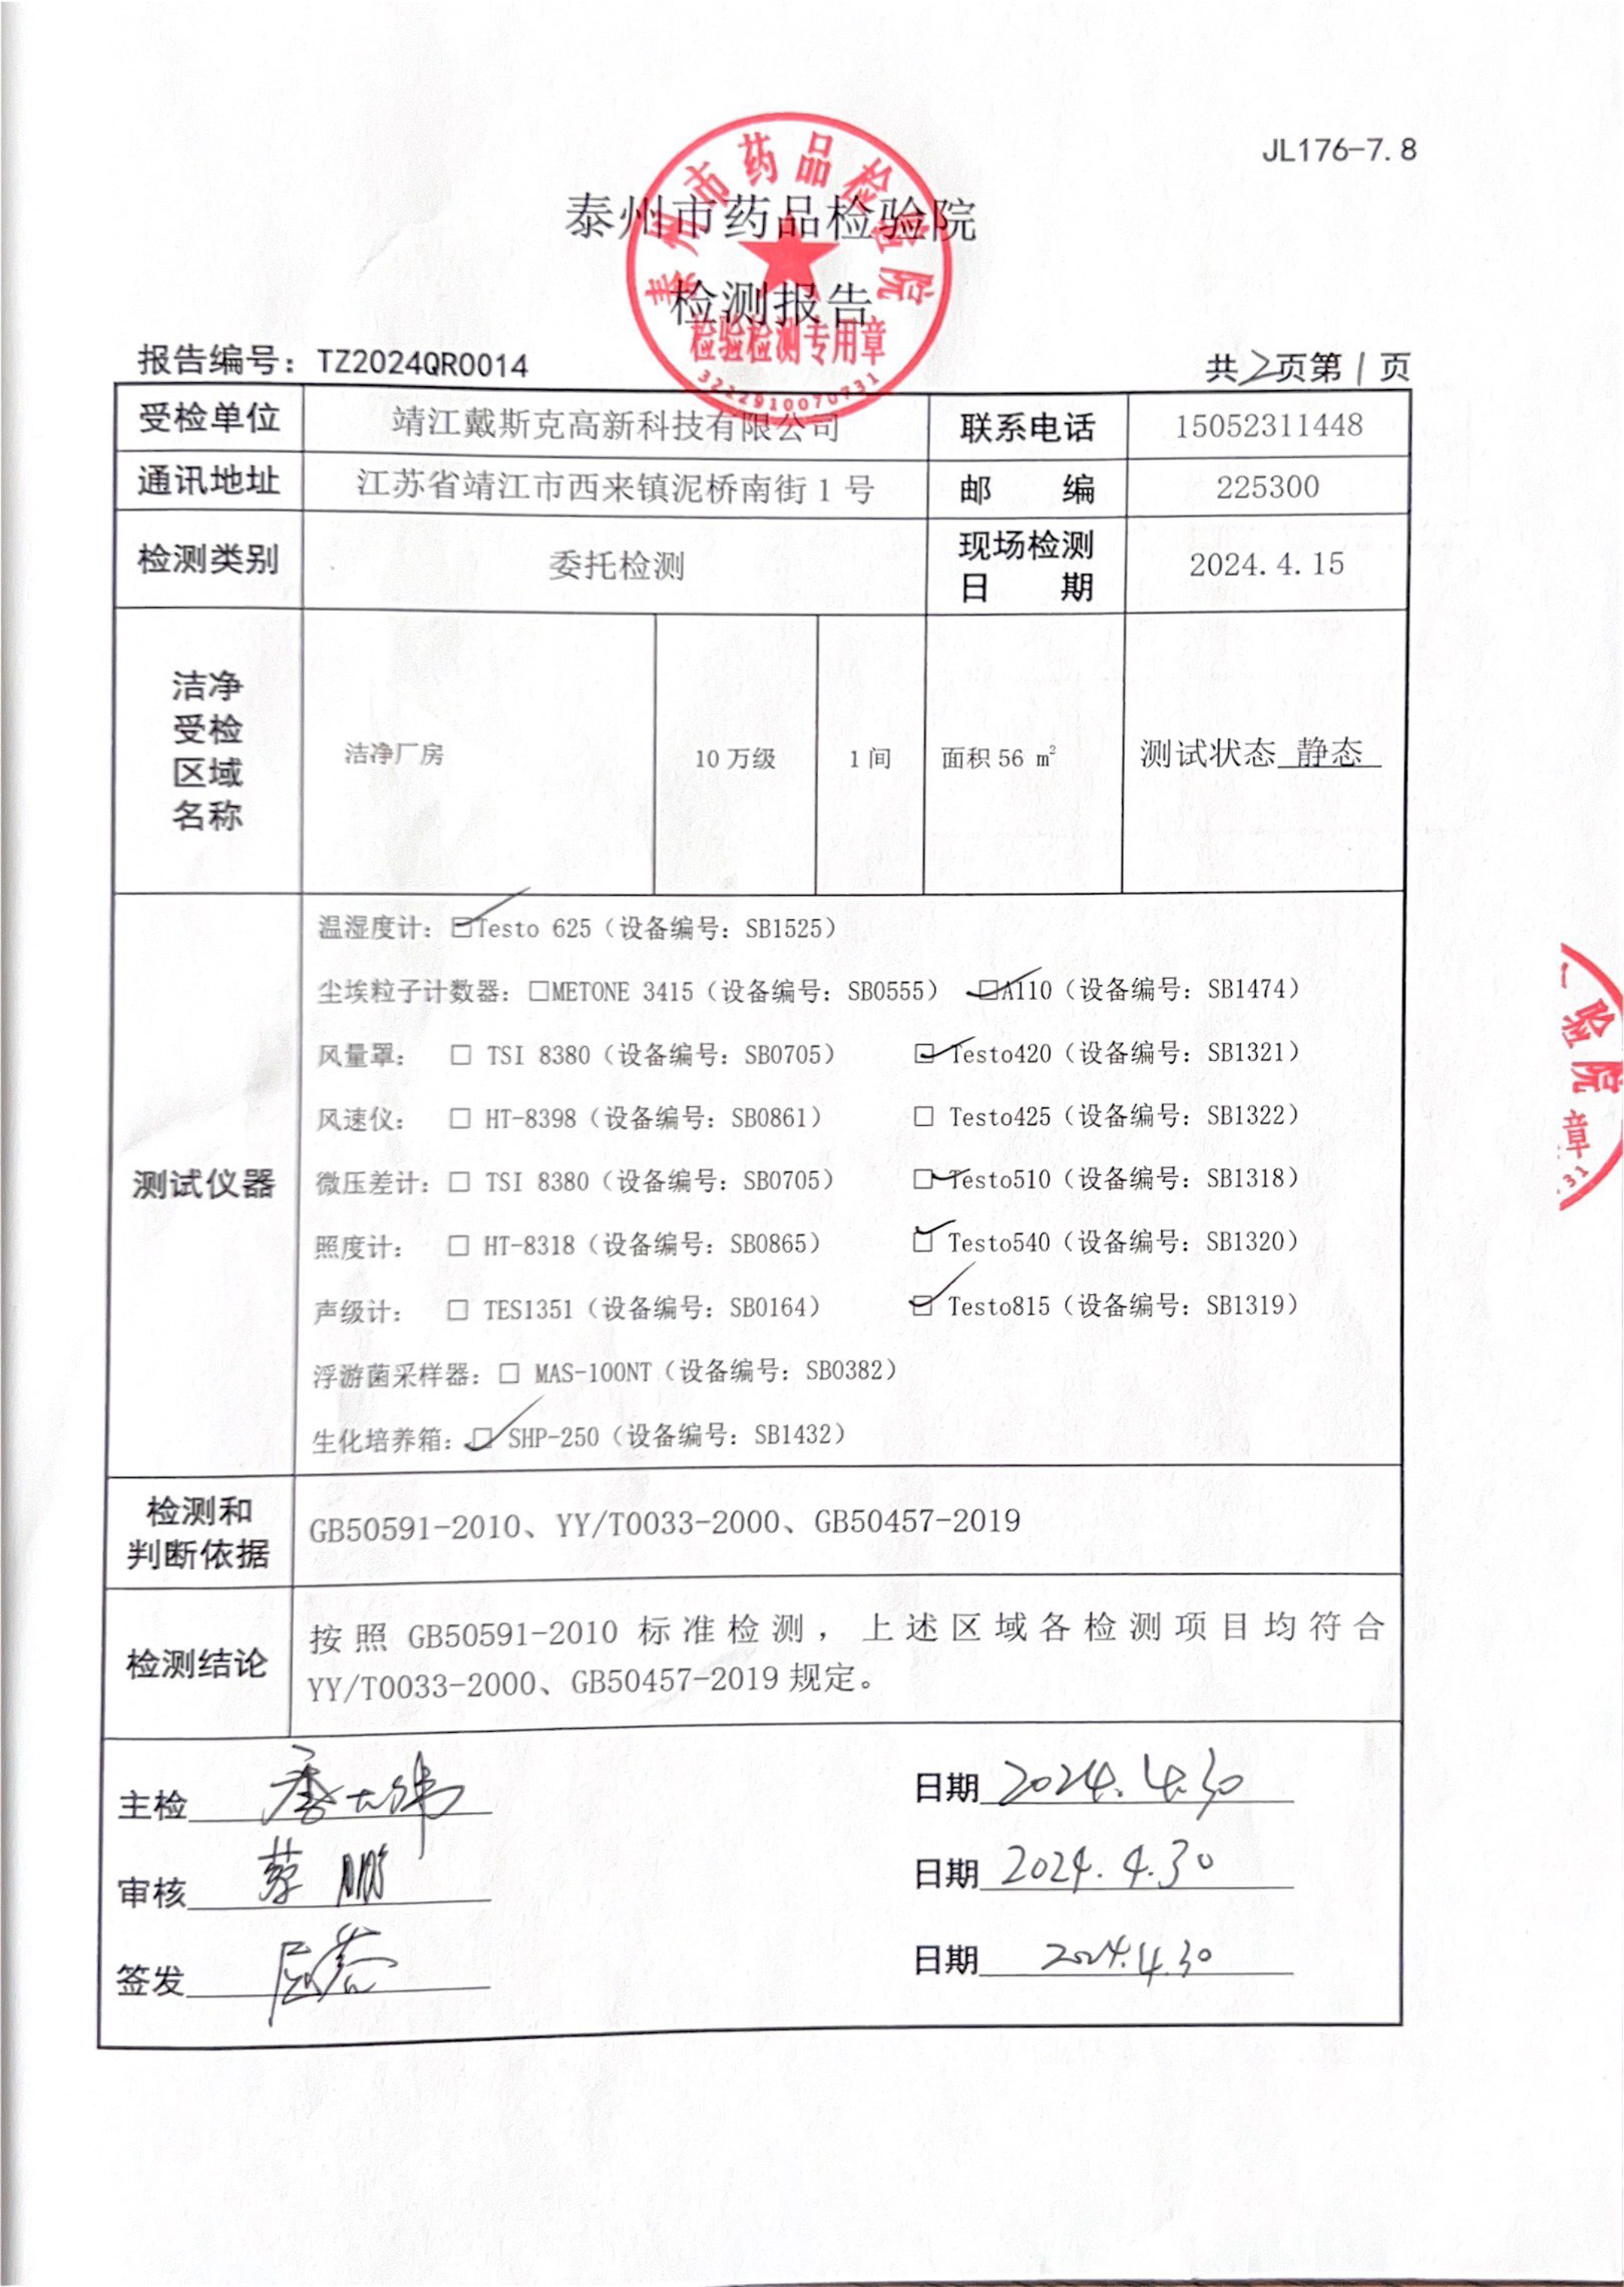 JL176-7.8
泰州市药品检验院
泰州市药品检验院
检测报告
检验检测专用章
报告编号：TZ2024QR0014
共2页第1页
受检单位 靖江戴斯克高新科技有限公司 联系电话 15052311448
通讯地址 江苏省靖江市西来镇泥桥南街1号 邮编 225300
检测类别 委托检测 现场检测日期 2024.4.15
洁净
受检
区域
名称
洁净厂房 10万级 1间 面积56 m² 测试状态 静态
测试仪器
温湿度计：☑Testo 625（设备编号：SB1525）
尘埃粒子计数器：□METONE 3415（设备编号：SB0555） ☑A110（设备编号：SB1474）
风量罩： □ TSI 8380（设备编号：SB0705） ☑ Testo420（设备编号：SB1321）
风速仪： □ HT-8398（设备编号：SB0861） □ Testo425（设备编号：SB1322）
微压差计：□ TSI 8380（设备编号：SB0705） ☑ Testo510（设备编号：SB1318）
照度计： □ HT-8318（设备编号：SB0865） ☑ Testo540（设备编号：SB1320）
声级计： □ TES1351（设备编号：SB0164） ☑ Testo815（设备编号：SB1319）
浮游菌采样器：□ MAS-100NT（设备编号：SB0382）
生化培养箱：☑ SHP-250（设备编号：SB1432）
检测和
判断依据
GB50591-2010、YY/T0033-2000、GB50457-2019
检测结论
按照 GB50591-2010 标准检测，上述区域各检测项目均符合
YY/T0033-2000、GB50457-2019规定。
主检 日期 2024.4.30
审核 蔡鹏 日期 2024.4.30
签发 日期 2024.4.30
验院
章
31